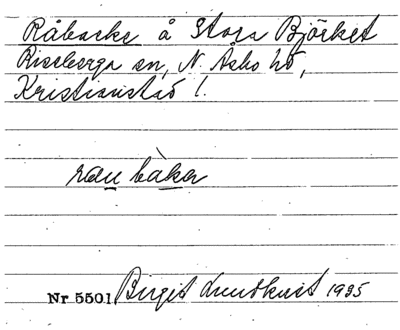 Råbacke å Stora Björket
Riseberga sn, N. Åsbo hd,
Kristianstad l.
rau bàkar
Nr 5501 Birgit Lundkvist 1935